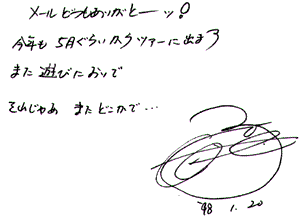 メールどうもありがとーッ!
今年も5月ぐらいからツアーに出ます
また遊びにおいで
それじゃあ またどこかで…
'98 1.20